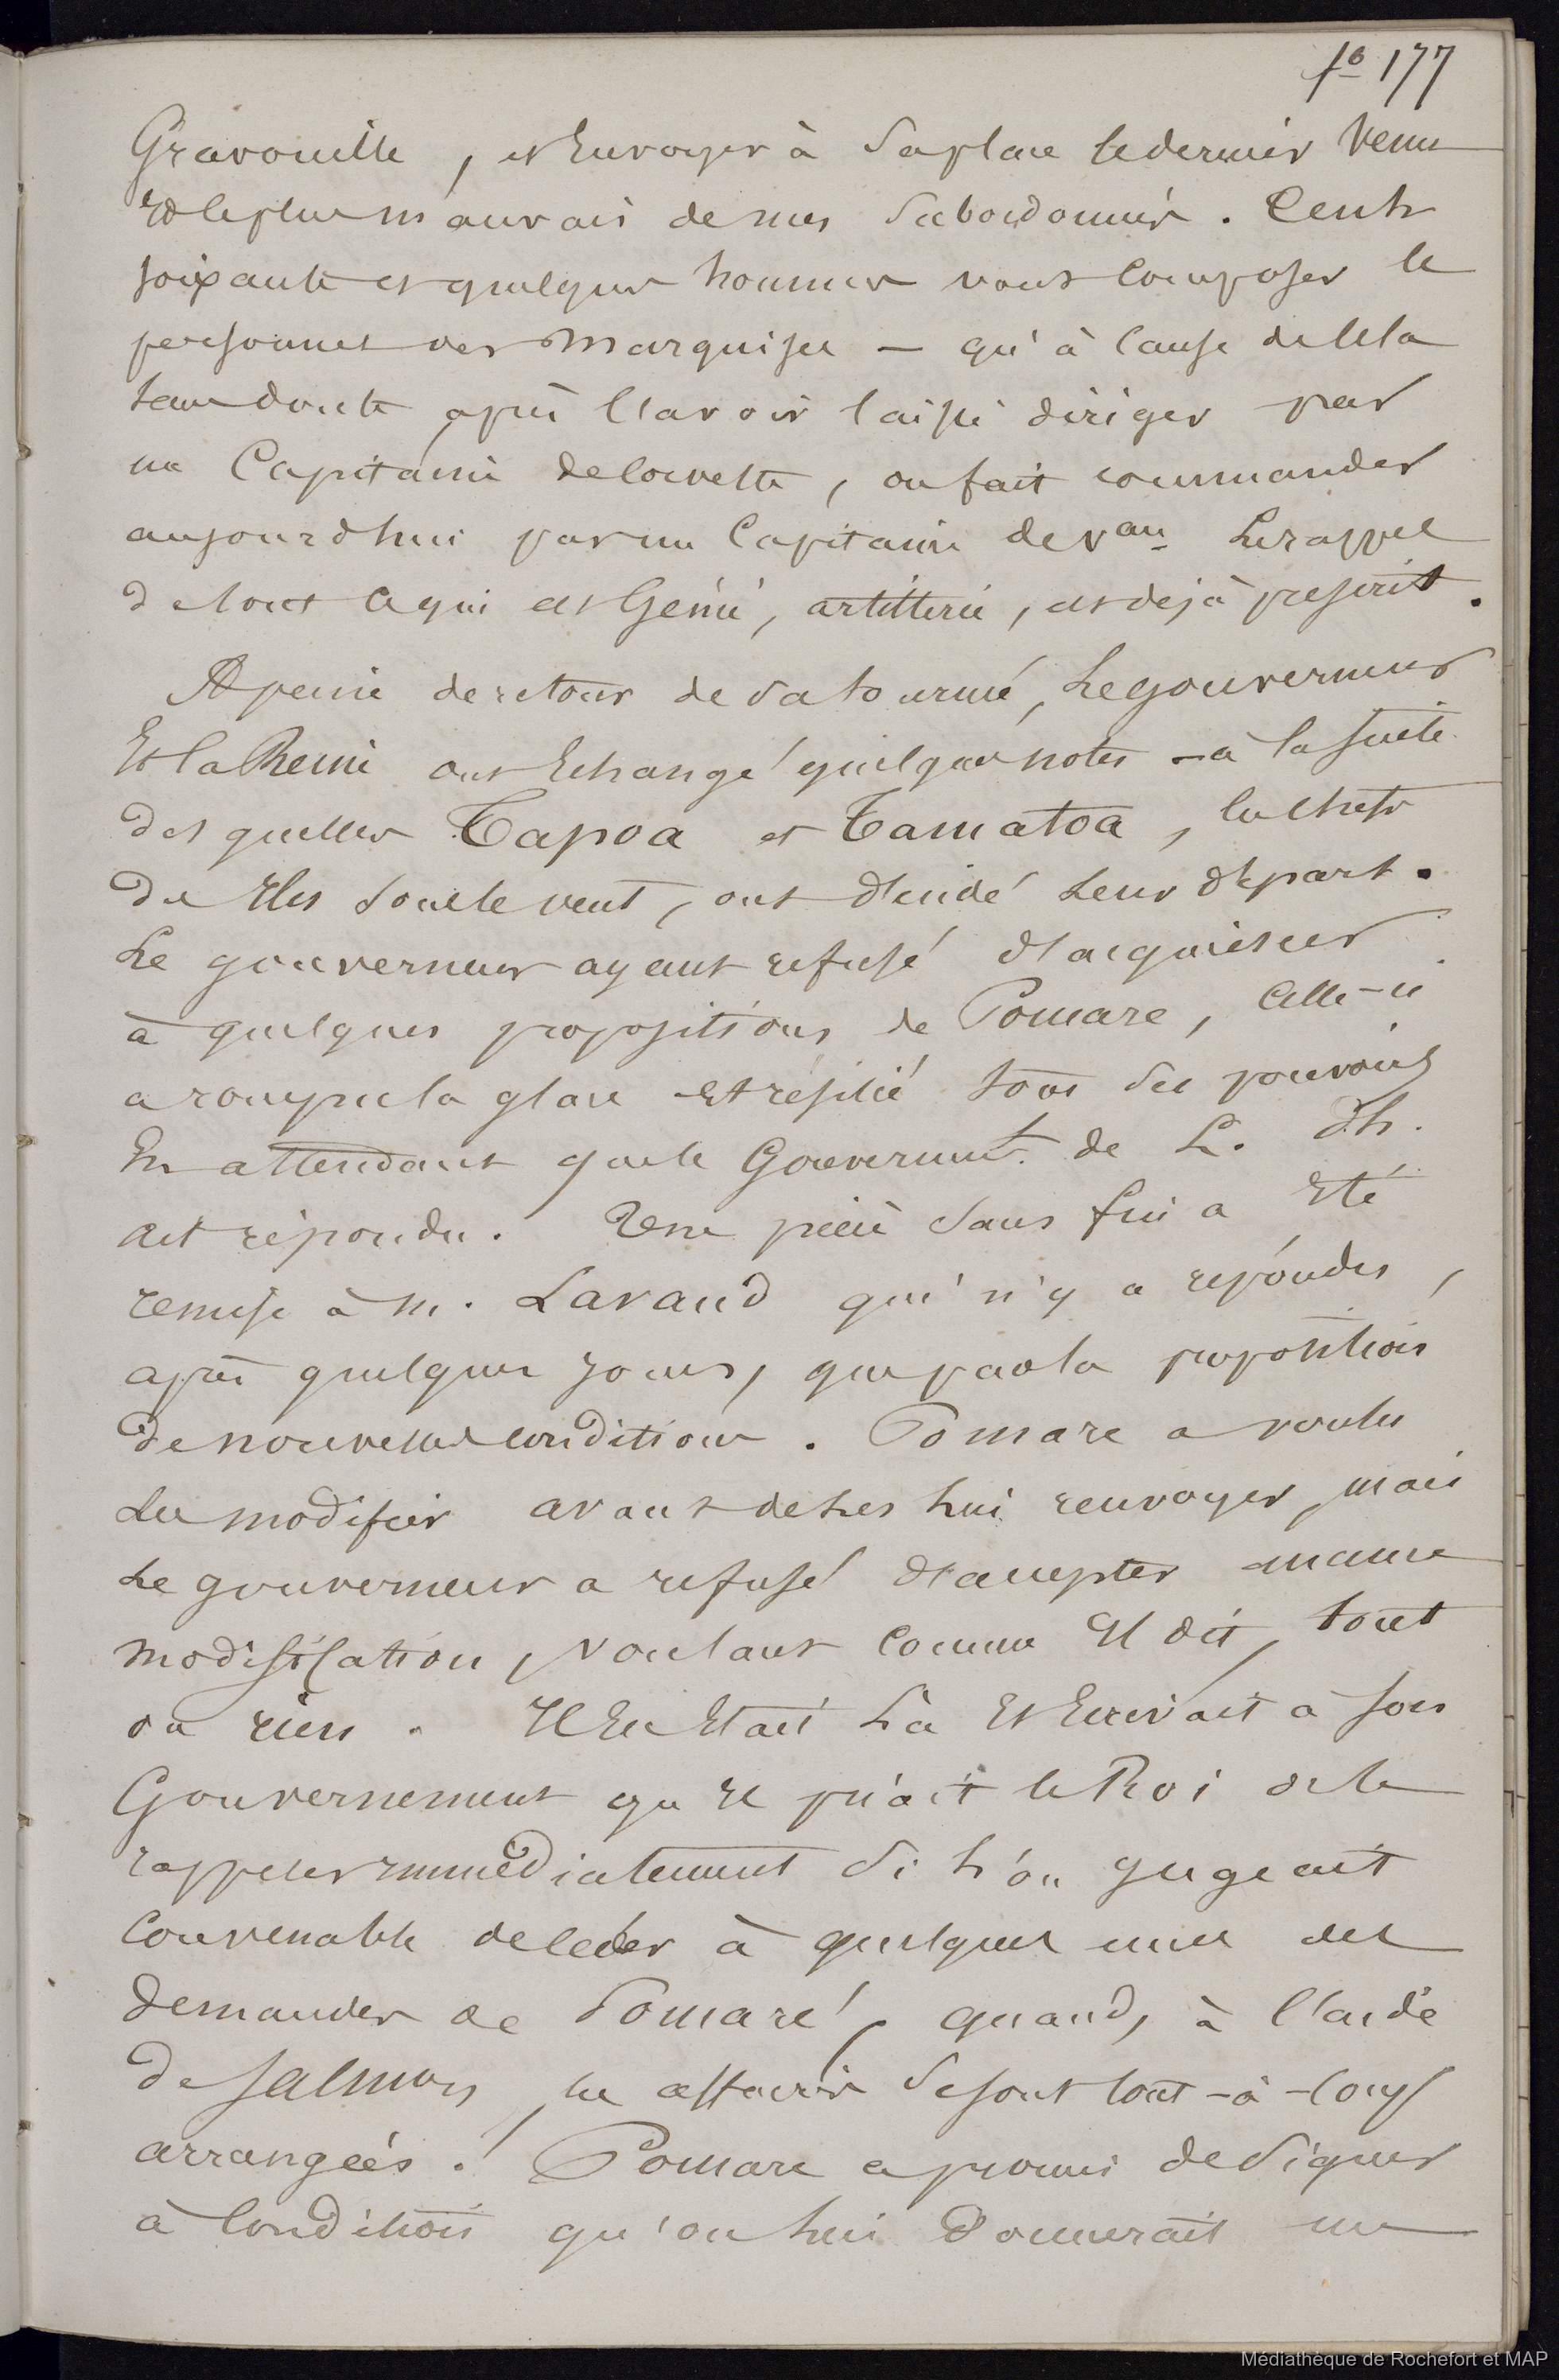 fo 177
Gravouille, et Envoyer à Sa place le dernier Venu
Et le plus mauvais de mes Subordonnés. Cent
soixante et quelques hommes vont Composer le
personnel des Marquises — qu'à Cause de cela
sans doute après l'avoir laissé diriger par
un Capitaine de Corvette, on fait commander
aujourd'hui par un Capitaine de Vau Le rappel
de tout ce qui est Génie, artillerie, est déjà prescrit.
A peine de retour de sa tournée, Le gouverneur
Et la Reine ont Echangé quelques notes – à la suite
des quelles Tapoa et Tamatoa, les chefs
des Iles sous le vent, ont décidé Leur départ.
Le gouverneur ayant refusé d'acquiescer
à quelques propositions de Pomare, Celle-ci
a rompu la glace et résilié tous ses pouvoirs
En attendant que le Gouvernt. de L. Ph.
ait répondu. Une pièce sans fin a Eté
remise à M. Lavaud qui n'y a répondu,
après quelques jours, que par la proposition
de nouvelles conditions. Pomare a voulu
Les modifier avant de Les Lui renvoyer, mais
Le gouverneur a refusé d'accepter aucune
modification, Voulant Comme Il dit, tout
ou rien. Il En Etait Là Et Ecrivait à son
Gouvernement qu'Il priait le Roi de le
rappeler Immédiatement Si L'on jugeait
Convenable de Céder à quelques unes des
demandes de Pomaré, quand, à l'aide
de Salmon, les affaires se sont tout-à-coup
arrangées! Pomare a promis de Signer
à Condition qu'on Lui Donnerait un
Médiathèque de Rochefort et MAP